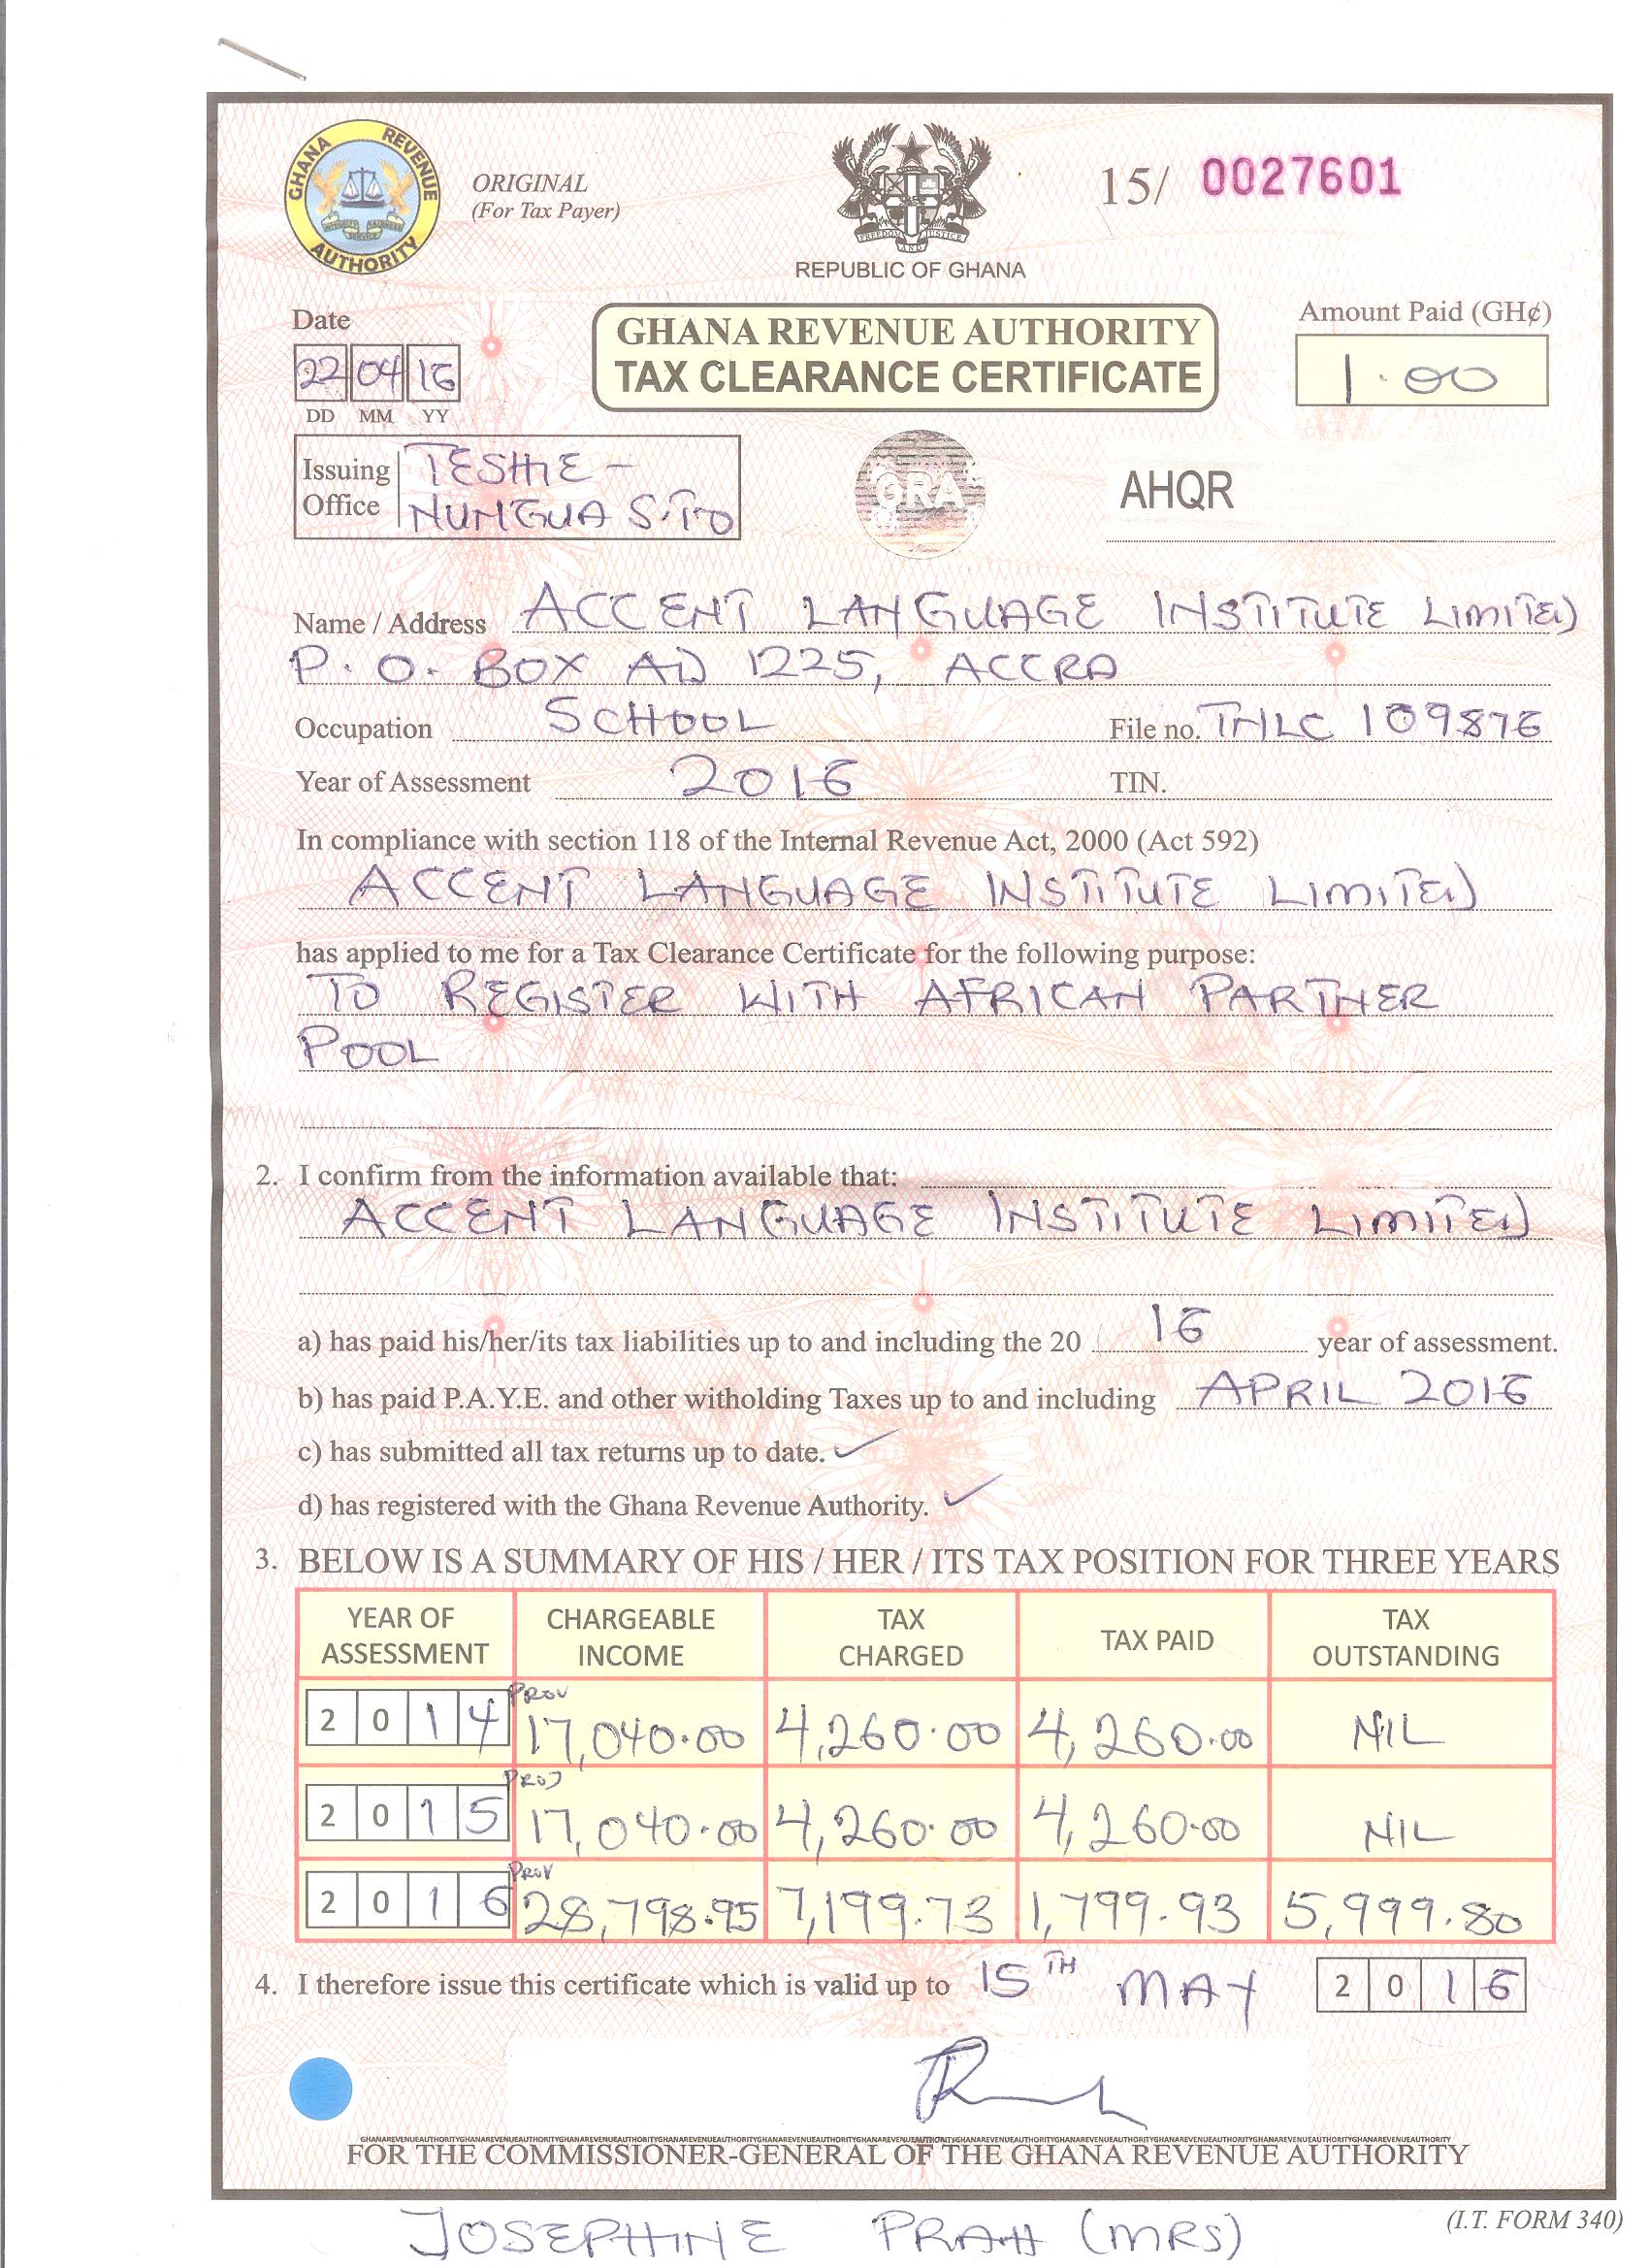 GHANA REVENUE AUTHORITY
ORIGINAL
(For Tax Payer)
FREEDOM AND JUSTICE
REPUBLIC OF GHANA
15/ 0027601
Date
22 04 16
DD MM YY
GHANA REVENUE AUTHORITY
TAX CLEARANCE CERTIFICATE
Amount Paid (GH¢)
1.00
Issuing Office TESHIE -
NUNGUA S.T.O
GRA
AHQR
Name / Address ACCENT LANGUAGE INSTITUTE LIMITED
P. O. BOX AD 1225, ACCRA
Occupation SCHOOL File no. TNLC 109876
Year of Assessment 2016 TIN.
In compliance with section 118 of the Internal Revenue Act, 2000 (Act 592)
ACCENT LANGUAGE INSTITUTE LIMITED
has applied to me for a Tax Clearance Certificate for the following purpose:
TO REGISTER WITH AFRICAN PARTNER
POOL
2. I confirm from the information available that:
ACCENT LANGUAGE INSTITUTE LIMITED
a) has paid his/her/its tax liabilities up to and including the 20 16 year of assessment.
b) has paid P.A.Y.E. and other witholding Taxes up to and including APRIL 2016
c) has submitted all tax returns up to date. ✓
d) has registered with the Ghana Revenue Authority. ✓
3. BELOW IS A SUMMARY OF HIS / HER / ITS TAX POSITION FOR THREE YEARS
YEAR OF ASSESSMENT CHARGEABLE INCOME TAX CHARGED TAX PAID TAX OUTSTANDING
2014 PROV 17,040.00 4,260.00 4,260.00 NIL
2015 PROV 17,040.00 4,260.00 4,260.00 NIL
2016 PROV 28,798.95 7,199.73 1,799.93 5,999.80
4. I therefore issue this certificate which is valid up to 15TH MAY 2016
GHANAREVENUEAUTHORITYGHANAREVENUEAUTHORITYGHANAREVENUEAUTHORITYGHANAREVENUEAUTHORITYGHANAREVENUEAUTHORITYGHANAREVENUEAUTHORITYGHANAREVENUEAUTHORITY
FOR THE COMMISSIONER-GENERAL OF THE GHANA REVENUE AUTHORITY
(I.T. FORM 340)
JOSEPHINE PRAH (MRS)